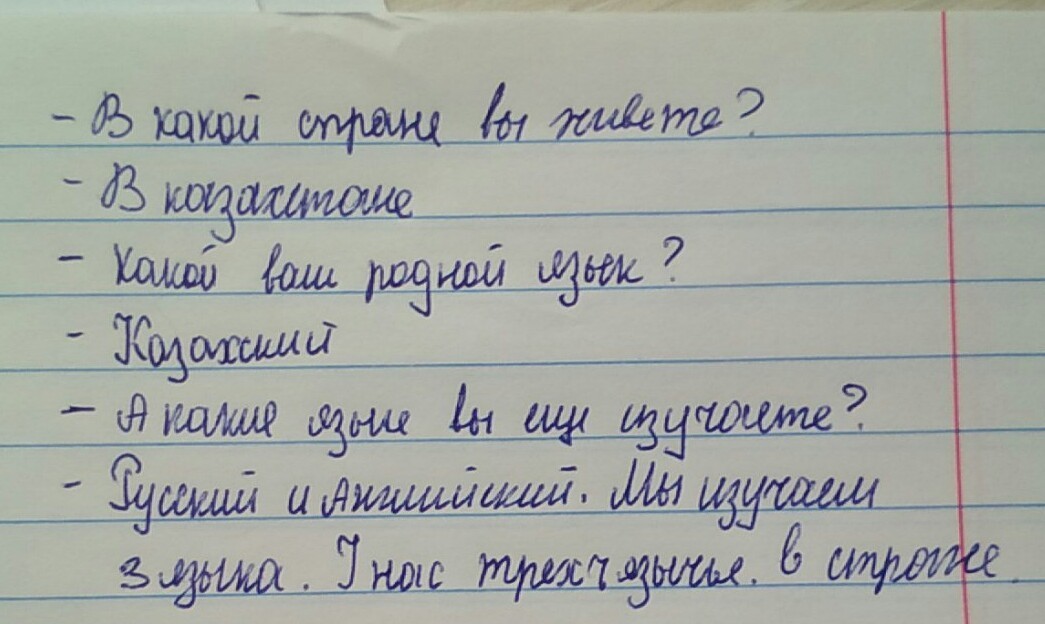 - В какой стране вы живете?
- В казахстане
- Какой ваш родной язык?
- Казахский
- А какие языке вы еще изучаете?
- Русский и Английский. Мы изучаем
3 языка. У нас трехъязычье. в стране.